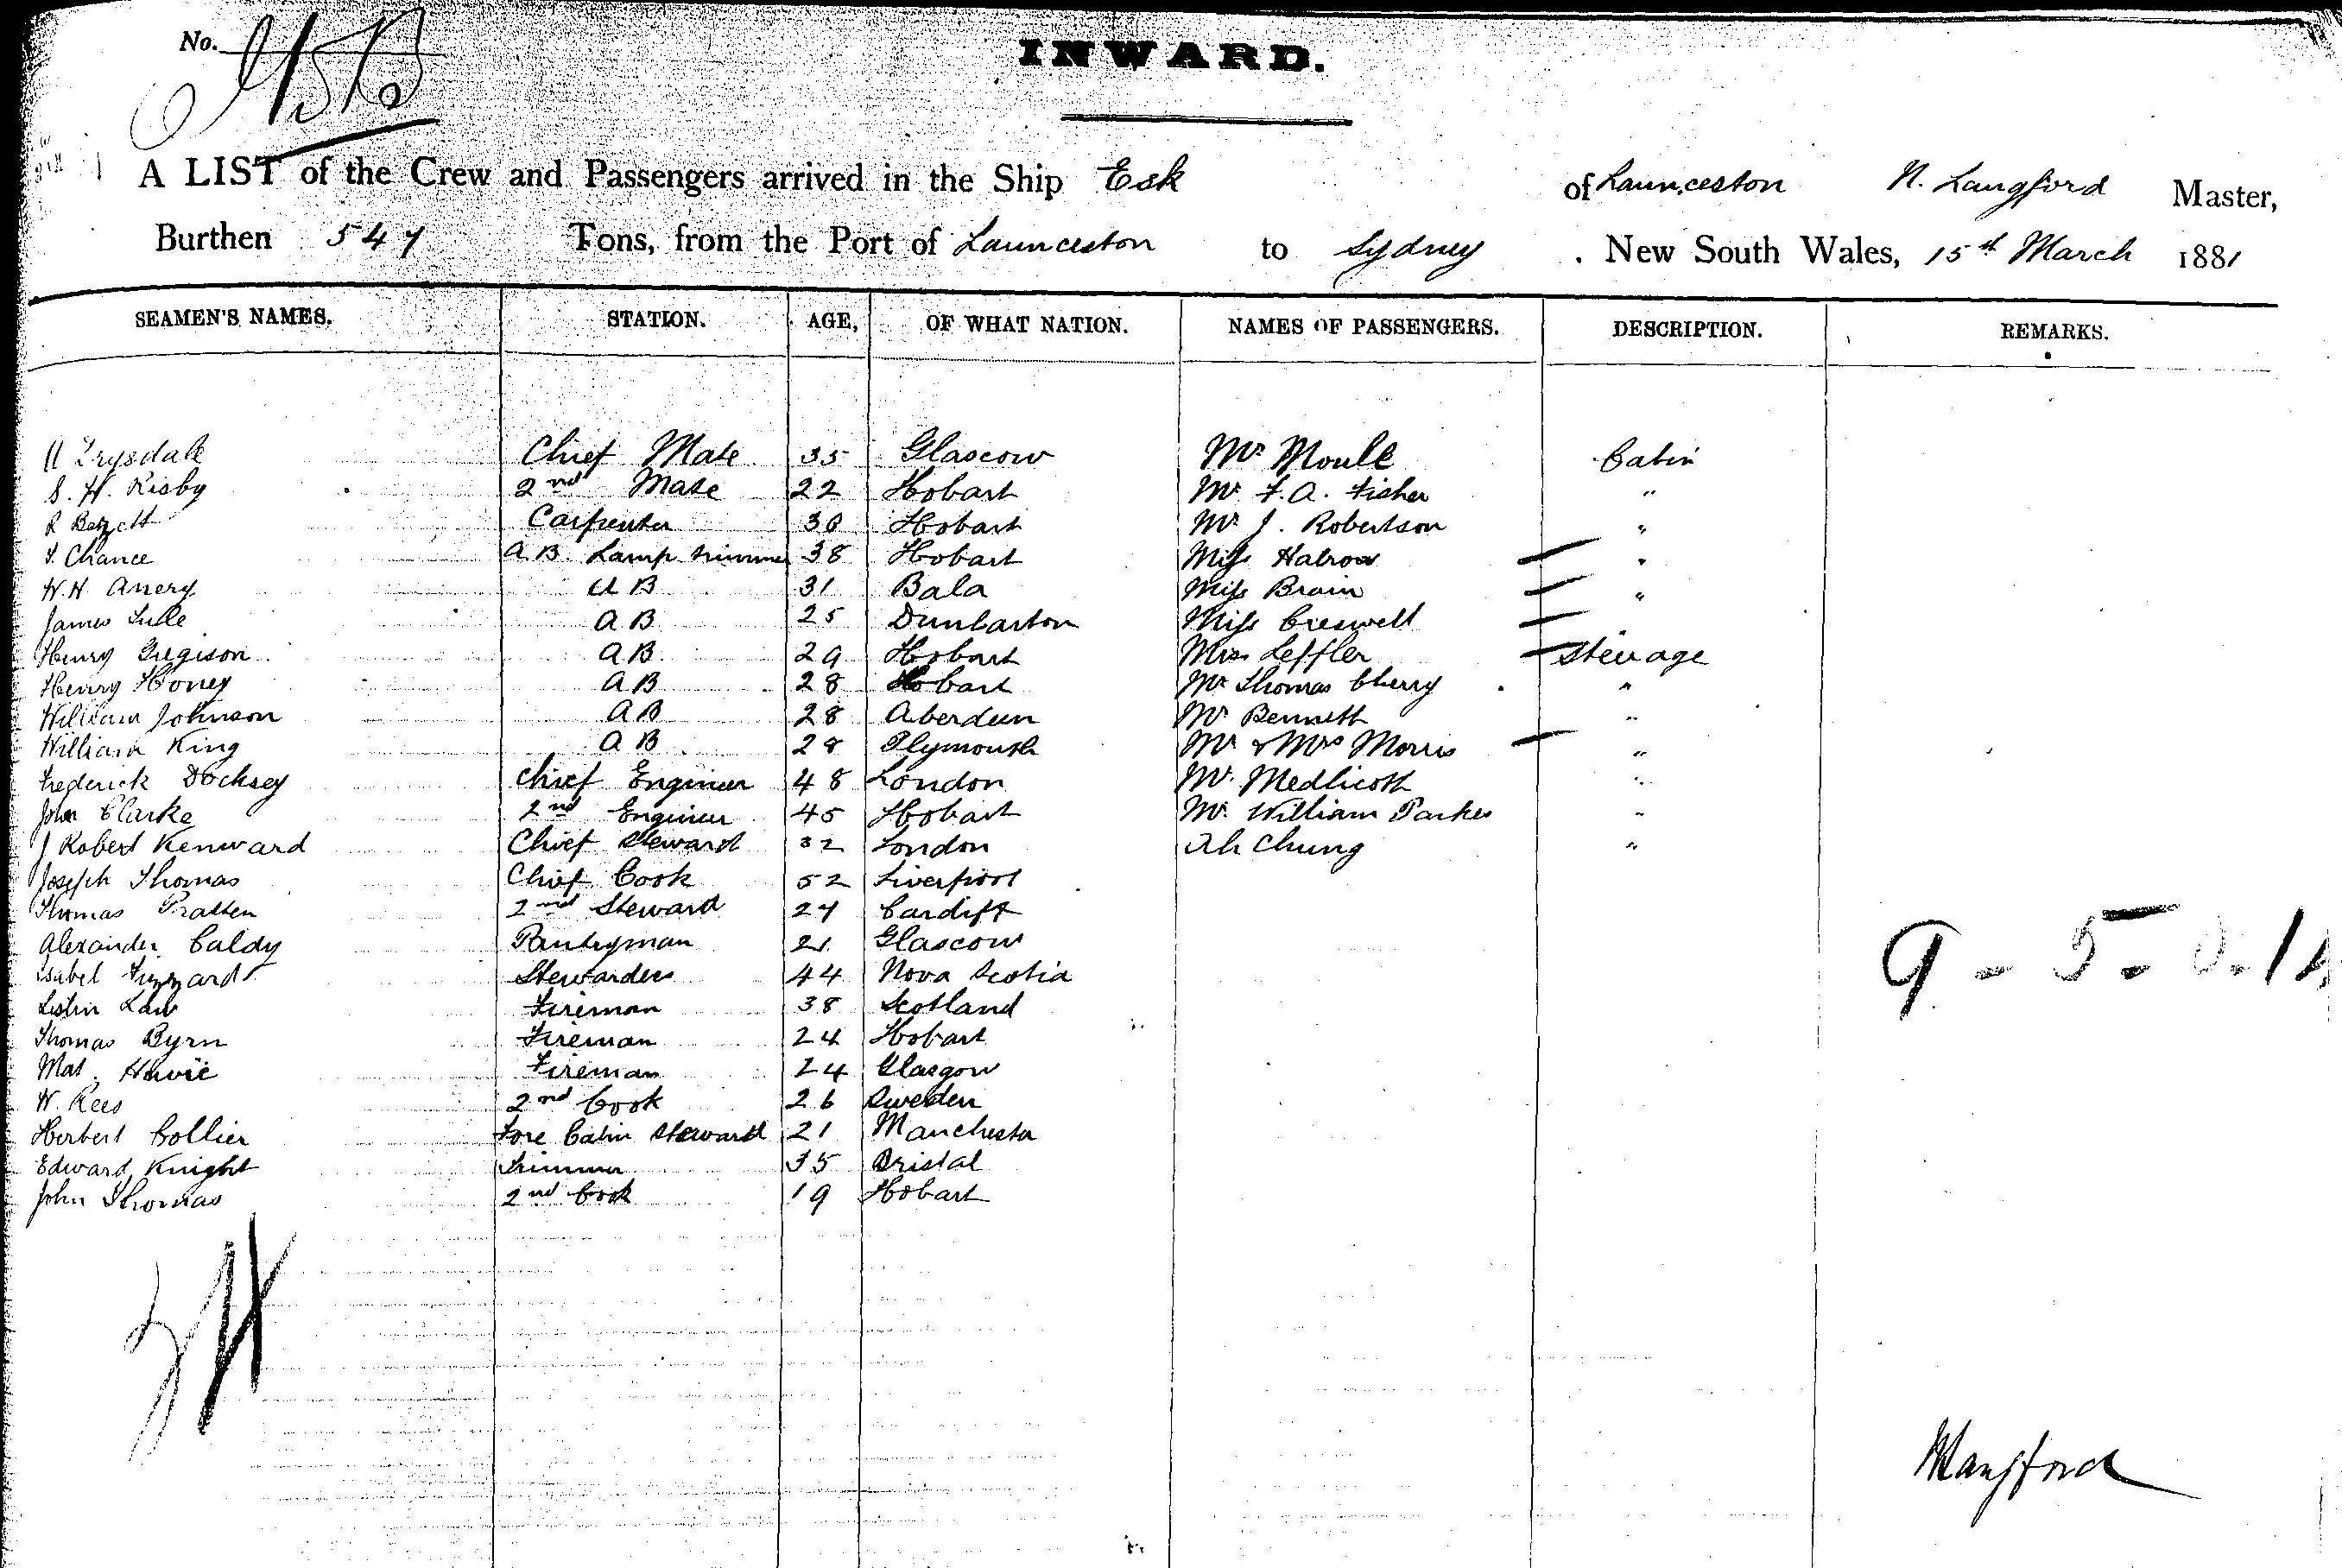 No.
INWARD.
A LIST of the Crew and Passengers arrived in the Ship Esk of Launceston N. Langford Master,
Burthen 547 Tons, from the Port of Launceston to Sydney . New South Wales, 15th March 1881
SEAMEN'S NAMES. STATION. AGE, OF WHAT NATION. NAMES OF PASSENGERS. DESCRIPTION. REMARKS.
Drysdale Chief Mate 35 Glascow Mr Moule Cabin
S. H. Risby 2nd Mate 22 Hobart Mr F. A. Fisher "
R Carpenter Hobart Mr J. Robertson "
Chance A.B. Lamp trimmer 38 Hobart Miss "
W. H. AB 31 Bala Miss Brain "
James AB 25 Dunbarton Miss Creswell "
Henry AB 29 Hobart Leffler Steerage
Henry Honey AB 28 Hobart Mr Thomas Cherry "
William Johnson AB 28 Aberdeen Mr Bennett "
William King AB 28 Plymouth Mr & Mrs Morris "
Frederick Docksey Chief Engineer 48 London Mr. Medlicott "
John Clarke 2nd Engineer 45 Hobart Mr. William Parkes "
J Robert Kenward Chief Steward 32 London Ah Chung "
Joseph Thomas Chief Cook 52 Liverpool
Thomas Pratten 2nd Steward 27 Cardiff
Alexander Caldy Pantryman 21 Glascow
Isabel Stewardess 44 Nova Scotia
Law Fireman 38 Scotland
Thomas Byrn Fireman 24 Hobart
Mat. Howie Fireman 24 Glasgow
W. Rees 2nd Cook 26 Sweden
Herbert Collier Fore Cabin Steward 21 Manchester
Edward Knight Trimmer 35 Bristal
John Thomas 2nd Cook 19 Hobart